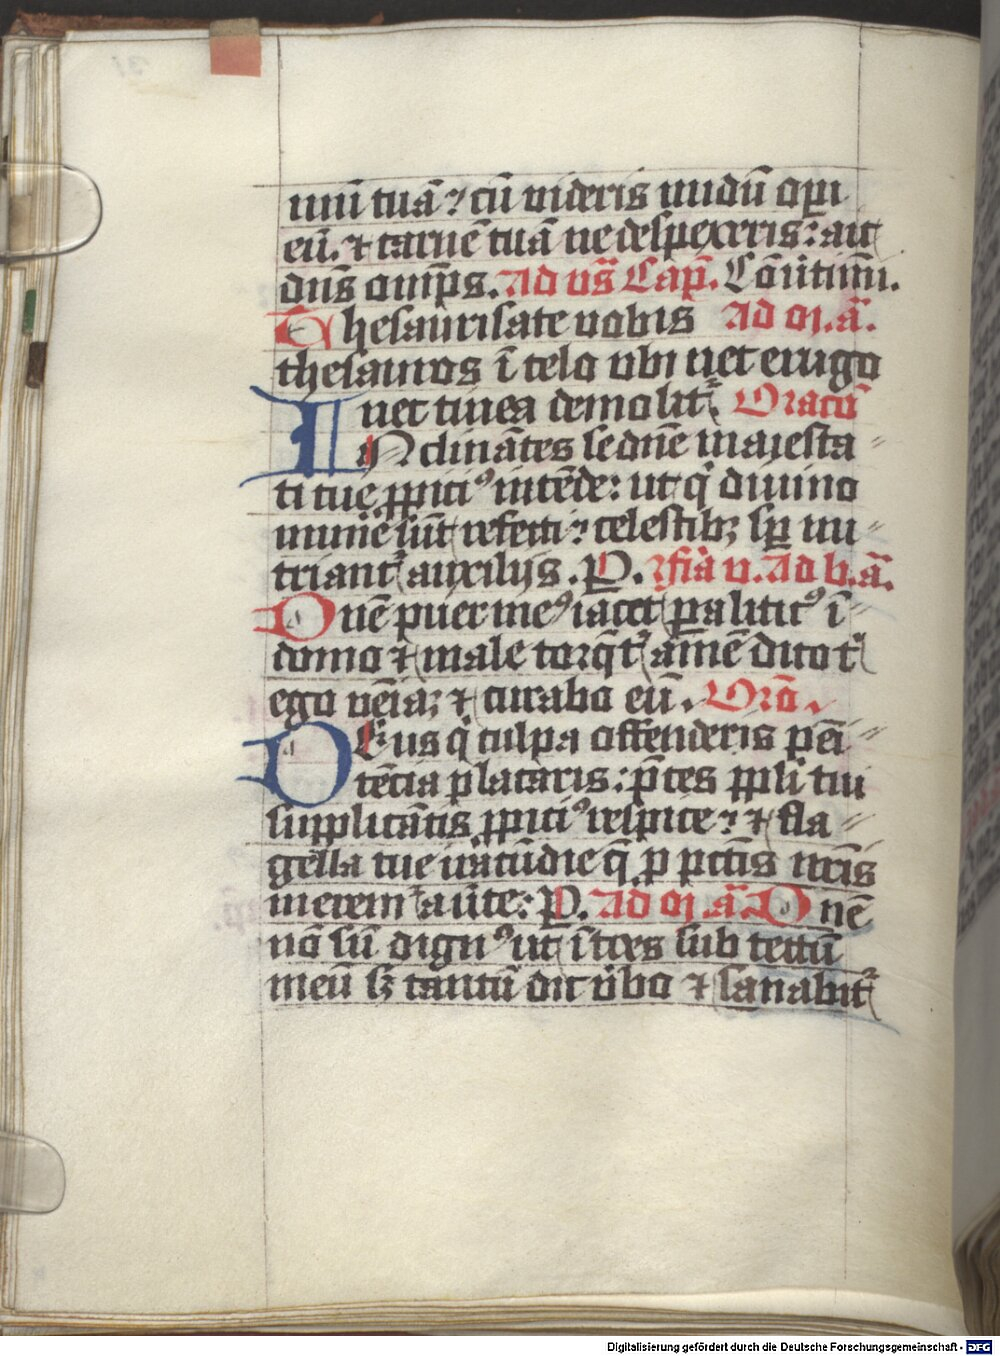 mū tuā ⁊ cū videris nudū opi
eū. ⁊ carnē tuā ne despexeris: ait
dns omps. Ad vs Cap. Cōvertimī.
Thesaurisate vobis Ad m. ā.
thesauros ī celo ubi nec erugo
nec tinea demolit᷑. Oracō
INclinātes se dn̄e maiesta
ti tue ꝓpici⁹ intēde: ut q̇ divino
mun̄e sūt refecti: celestibꝫ sp̱ nu
triant᷑ auxilijs. P. rfīa v. Ad b. ā.
Dn̄e puer me⁹ iacet ꝑalitic⁹ ī
domo ⁊ male torq̄t᷑ amē dico t'
ego vēiā ⁊ curabo eū. Orō.
DEus q̇ culpa offenderis pēī
tēcia placaris: p̄ces ppl̄i tui
supplicātis ꝓpici⁹ respice: ⁊ fla
gella tue iracūdie q̄ ꝓ pctīs nr̄is
merem᷑ av̓te: P. Ad m. ā. Dn̄e
nō sū dign⁹ ut ītres sub tectū
meū sꝫ tantū dic v̓bo ⁊ sanabit᷑
Digitalisierung gefördert durch die Deutsche Forschungsgemeinschaft - DFG